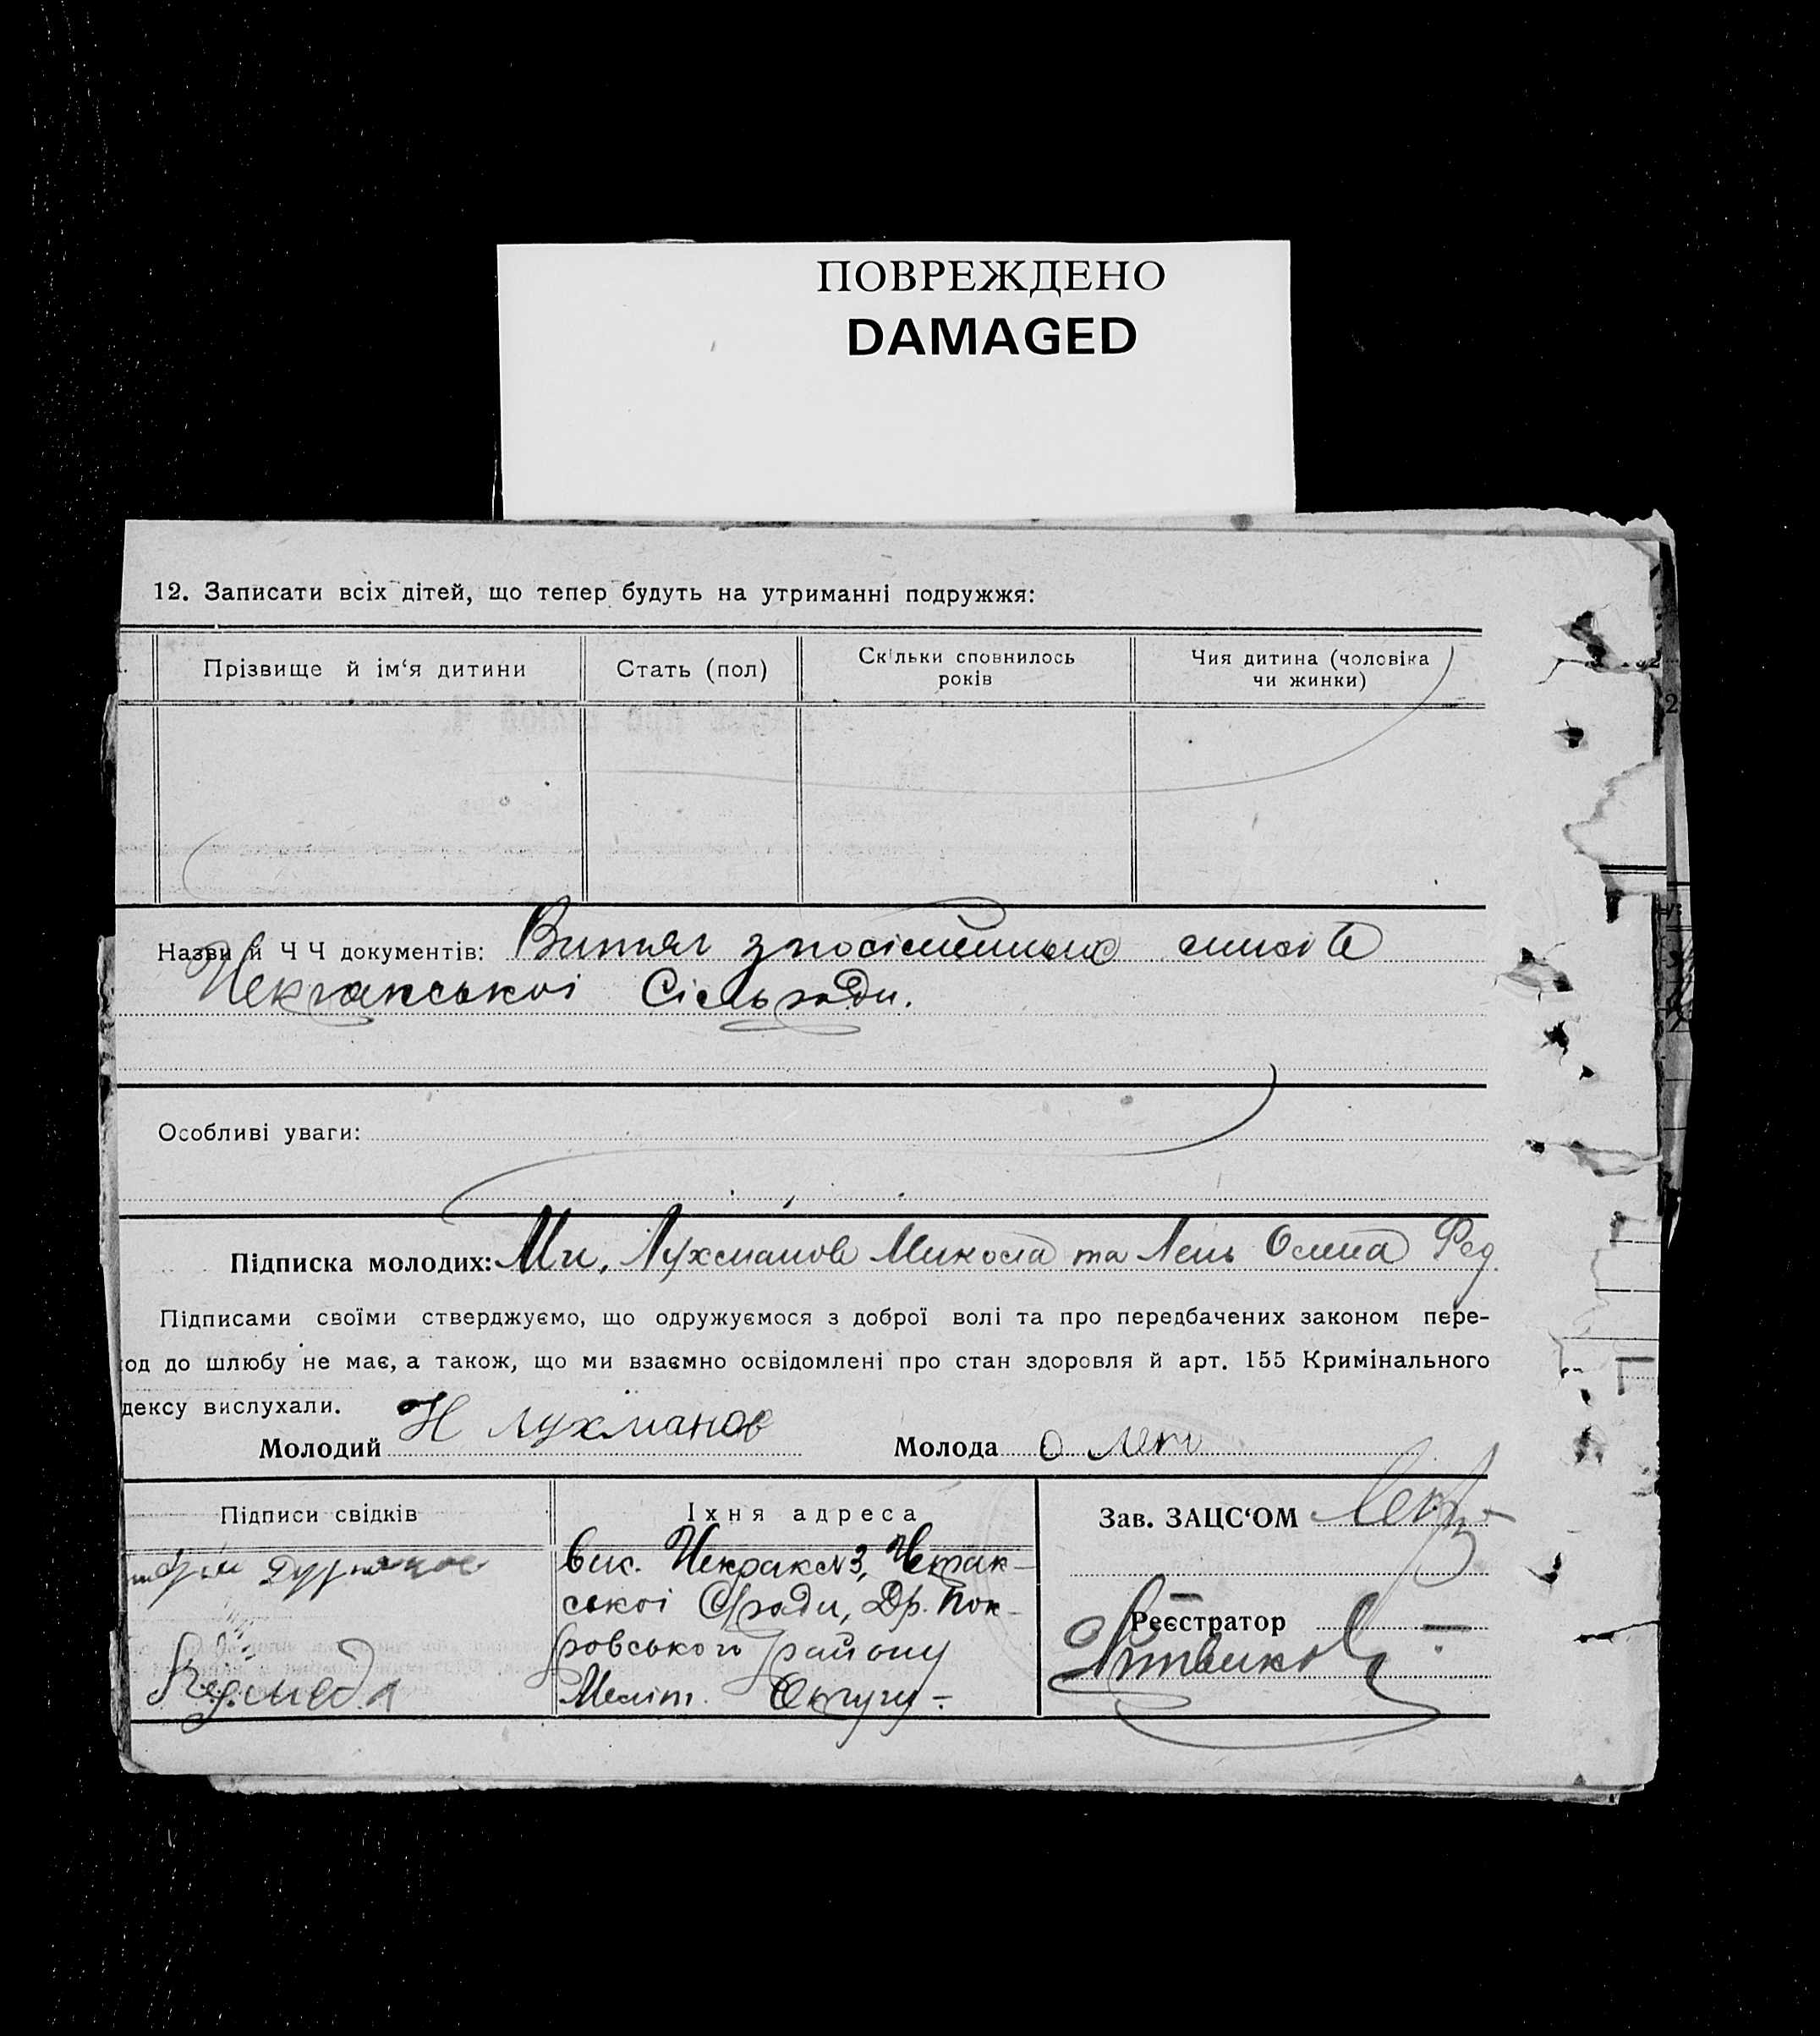 ПОВРЕЖДЕНО
DAMAGED
12. Записати всіх дітей, що тепер будуть на утриманні подружжя:
Прізвище й ім‘я дитини
Стать (пол)
Скільки сповнилось
років
Чия дитина (чоловіка
чи жинки)
Назви й Ч Ч документів: Витяг з посімейних списків
Сільради.
Особливі уваги:
Підписка молодих: Ми, Лухманов Микола та Лень
Підписами своїми стверджуємо, що одружуємося з доброї волі та про передбачених законом пере-
од до шлюбу не має, а також, що ми взаємно освідомлені про стан здоровля й арт. 155 Кримінального
дексу вислухали.
Молодий Н Лухманов
Молода О Лень
Підписи свідків
Їхня адреса
Зав. ЗАЦС‘ОМ
вик.
ської С/ради, Др. Пок-
ровського району
Меліт. Округу
Реєстратор